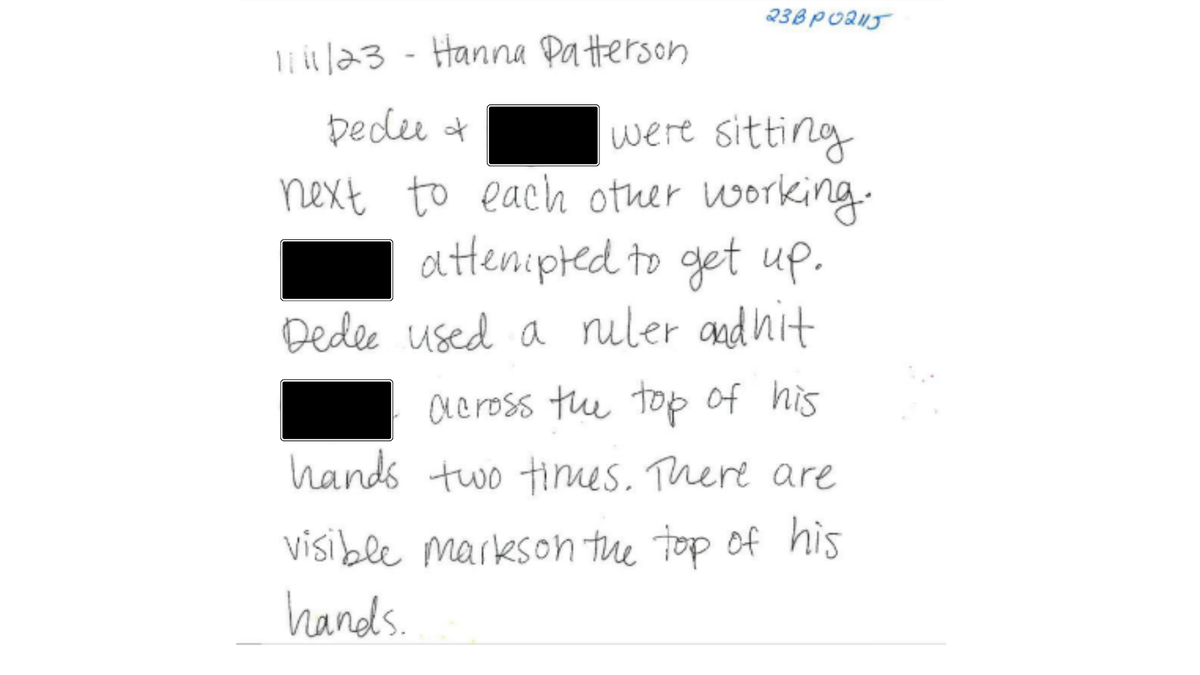 23BP02115
11/11/23 - Hanna Patterson
Dedee & were sitting
next to each other working.
attempted to get up.
Dedee used a ruler and hit
across the top of his
hands two times. There are
visible marks on the top of his
hands.